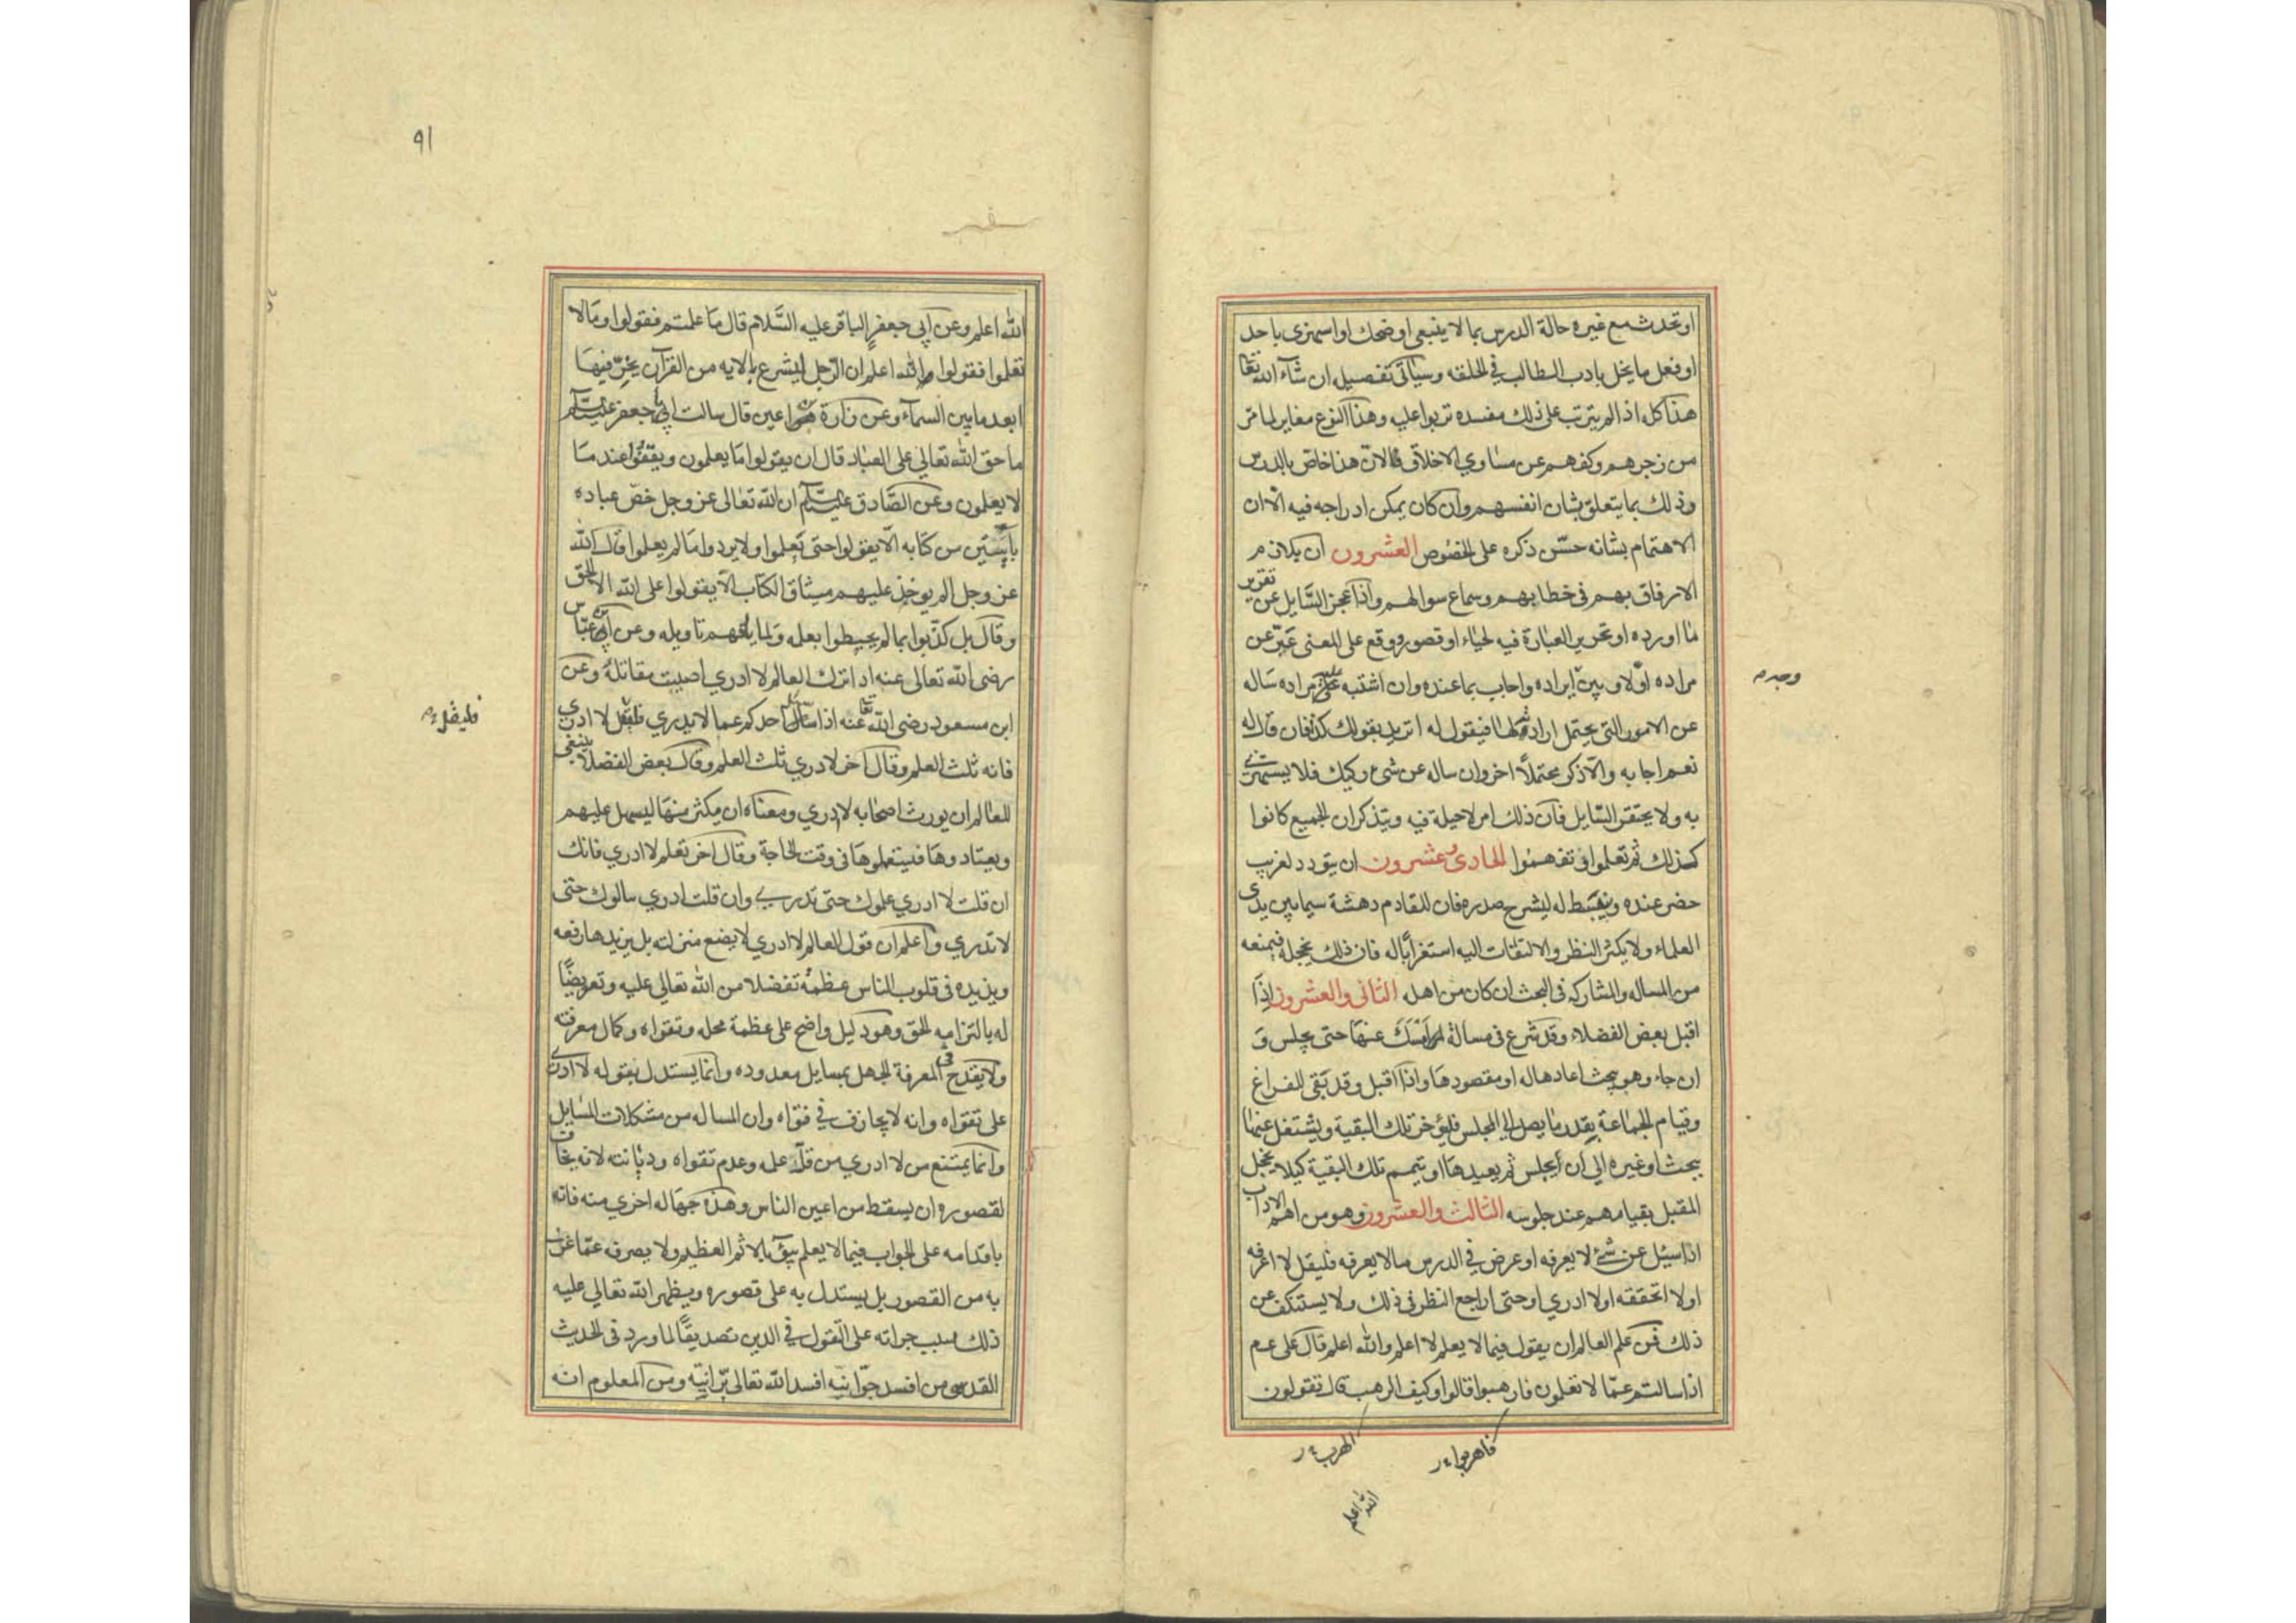 او تحدث مع غيره حالة الدرس بما لا ينبغى او ضحك او استهزى باحد
او فعل ما يخل بادب الطالب في الحلقه وسياتى تفصيل ان شآء الله تعا
هذا كله اذا لم يترتب على ذلك مفسده تربوا عليه وهذا النوع مغاير لما مرّ
من زجرهم وكفهم عن مساوي الاخلاق لان هذا خاصّ بالدرس
وذلك بما يتعلق بشان انفسهم وان كان يمكن ادراجه فيه الّا ان
الاهتمام بشانه حسّن ذكره على الخصوص العشرون ان يلازم
الارفاق بهم في خطابهم وسماع سوالهم واذا عجز السّايل عن تقرير
ما اورده او تحرير العبارة فيه لحياء او قصور ووقع على المعنى عبّر عن
مراده اوّلا وبيّن ايراده واجاب بما عنده وان اشتبه عليه مراده ساله
عن الامور التى يحتمل ارادته لها فيقول له اتريد بقولك كذا فان قال له
نعم اجابه والّا ذكر محتملاً اخر وان ساله عن شئ ركيك فلا يستهزئ
به ولا يحتقر السّايل فانّ ذلك امر لا حيلة فيه ويتذكر ان الجميع كانوا
كذلك ثم تعلموا وتفهموا الحادى وعشرون ان يتودد لغريب
حضر عنده وينبسط له ليشرح صدره فان للقادم دهشة سيما بين يدى
العلماء ولا يكثر النظر والالتفات اليه استغراباً له فان ذلك يخجله فيمنعه
من المساله والمشاركه فى البحث ان كان من اهله الثانى والعشرون اذا
اقبل بعض الفضلاء وقد شرع فى مسالة امسك عنها حتى يجلس و
ان جاء وهو يبحث اعادها له او مقصودها واذا اقبل وقد بقى للفراغ
وقيام الجماعة بقدر ما يصل الى المجلس فليؤخر تلك البقية ويشتغل عنها
ببحث او غيره الى ان يجلس ثم يعيدها او يتمم تلك البقية كيلا يخجل
المقبل بقيامهم عند جلوسه الثالث والعشرون وهو من اهم الاداب
اذا سيل عن شئ لا يعرفه او عرض في الدرس ما لا يعرفه فليقل لا اعرفه
او لا اتحققه او لا ادري او حتى اراجع النظر فى ذلك ولا يستنكف عن
ذلك فمن علم العالم ان يقول فيما لا يعلم لا اعلم والله اعلم قال على عم
اذا سالتم عمّا لا تعلمون فاهربوا قالوا وكيف الهرب قال تقولون
وجد م
فاهربوا
الهرب
الله اعلم
٩١
الله اعلم وعن ابي جعفر الباقر عليه السّلام قال ما علمتم فقولوا وما لا
تعلموا فقولوا الله اعلم ان الرّجل ليشرع بالايه من القرآن يخرّ فيها
ابعد ما بين السمآء وعن زرارة بن اعين قال سالت ابا جعفر عليه السلم
ما حق الله تعالى على العباد قال ان يقولوا ما يعلمون ويقفوا عند ما
لا يعلمون وعن الصّادق عليه السلم ان الله تعالى عز وجل خصّ عباده
بايتين من كتابه الّا يقولوا حتى يعلموا ولا يردوا ما لم يعلموا قال الله
عز وجل الم يوخذ عليهم ميثاق الكتاب الّا يقولوا على الله الا الحق
وقال بل كذّبوا بما لم يحيطوا بعلمه ولما ياتهم تاويله وعن ابن عبّاس
رضى الله تعالى عنه اذا ترك العالم لا ادري اصيبت مقاتله وعن
ابن مسعود رضى الله تعا عنه اذا سال احدكم عما لا يدري فليقل لا ادري
فانه ثلث العلم وقال اخر لا ادري ثلث العلم وقال بعض الفضلاء ينبغى
للعالم ان يورث اصحابه لا ادري ومعناه ان يكثر منها ليسهل عليهم
ويعتادوها فيستعملوها فى وقت الحاجة وقال اخر تعلم لا ادري فانك
ان قلت لا ادري علموك حتى تدري وان قلت ادري سالوك حتى
لا تدري واعلم ان قول العالم لا ادري لا يضع منزلته بل يزيدها رفعه
ويزيده فى قلوب الناس عظمة تفضلا من الله تعالى عليه وتعويضًا
له بالتزامه الحق وهو دليل واضح على عظمة محله وتقواه وكمال معرفته
ولا يقدح فى المعرفة الجهل بمسايل معدوده وانما يستدل بقوله لا ادرى
على تقواه وانه لا يجازف في فتواه وان المساله من مشكلات المسايل
وانما يمتنع من لا ادري من قلّ علمه وعدم تقواه وديانته لانه يخاف
لقصوره ان يسقط من اعين الناس وهذه جهاله اخري منه فانه
باقدامه على الجواب فيما لا يعلم يبؤ بالاثم العظيم ولا يصرفه عمّا عرف
به من القصور بل يستدل به على قصوره ويظهر الله تعالى عليه
ذلك بسبب جراته على القول في الدين تصديقًا لما ورد فى الحديث
القدسى من افسد جوّانيّه افسد الله تعالى برّانيّه ومن المعلوم انه
فليقل